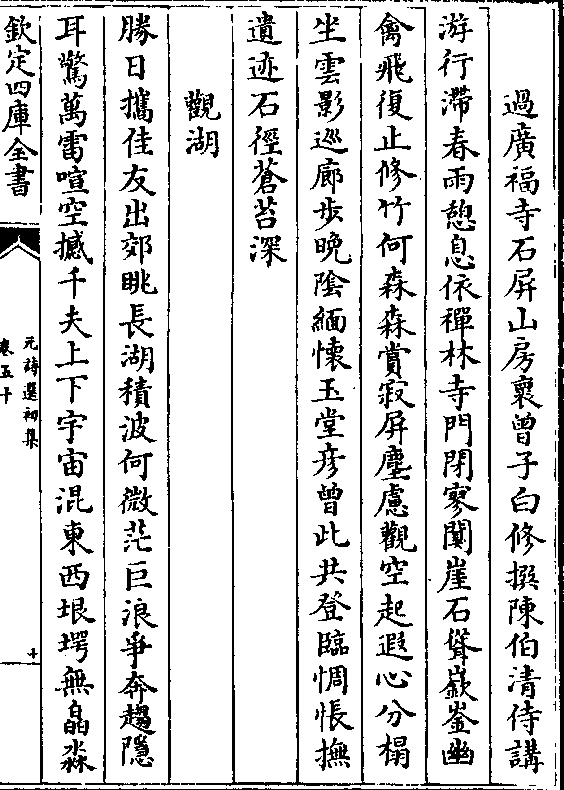 過廣福寺石屏山房裏曾子白修撰陳伯清侍講
游行滯春雨憩息依禪林寺門閉寥闃崖石聳嶔崟幽
禽飛復止修竹何森森賞寂屏塵慮觀空起遐心分榻
坐雲影巡廊步晚陰緬懷玉堂彦曾此共登臨惆悵撫
遺迹石徑蒼苔深
觀湖
勝日攜佳友出郊眺長湖積波何微茫巨浪爭奔趨隱
耳驚萬雷喧空撼千夫上下宇宙混東西垠堮無皛淼
欽定四庫全書
元詩選初集
卷五十
十